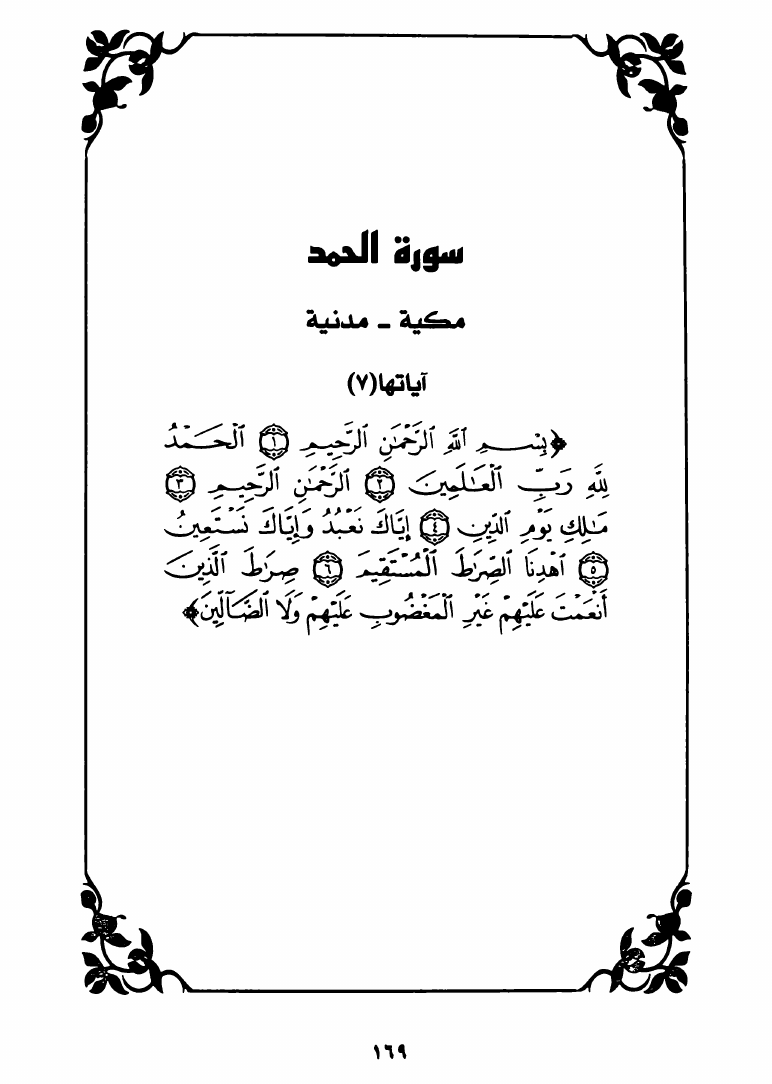 سورة الحمد
مكية ـ مدنية
آياتها(٧)
﴿بِسْمِ ٱللَّهِ ٱلرَّحْمَٰنِ ٱلرَّحِيمِ ١ ٱلْحَمْدُ
لِلَّهِ رَبِّ ٱلْعَٰلَمِينَ ٢ ٱلرَّحْمَٰنِ ٱلرَّحِيمِ ٣
مَٰلِكِ يَوْمِ ٱلدِّينِ ٤ إِيَّاكَ نَعْبُدُ وَإِيَّاكَ نَسْتَعِينُ
٥ ٱهْدِنَا ٱلصِّرَٰطَ ٱلْمُسْتَقِيمَ ٦ صِرَٰطَ ٱلَّذِينَ
أَنْعَمْتَ عَلَيْهِمْ غَيْرِ ٱلْمَغْضُوبِ عَلَيْهِمْ وَلَا ٱلضَّآلِّينَ﴾
١٦٩